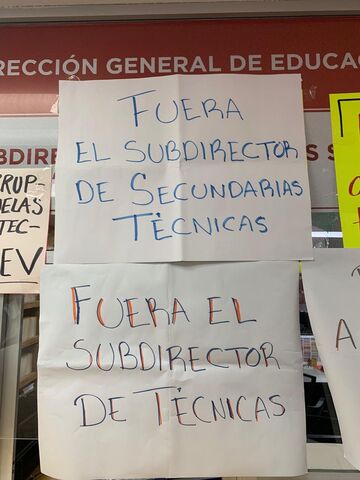 RECCIÓN GENERAL DE EDUCA
FUERA
EL SUBDIRECTOR
DE SECUNDARIAS
TÉCNICAS
FUERA EL
SUBDIRECTOR
DE TÉCNICAS
BDIRE
S
RUP
ELAS
TEC-
EV
A